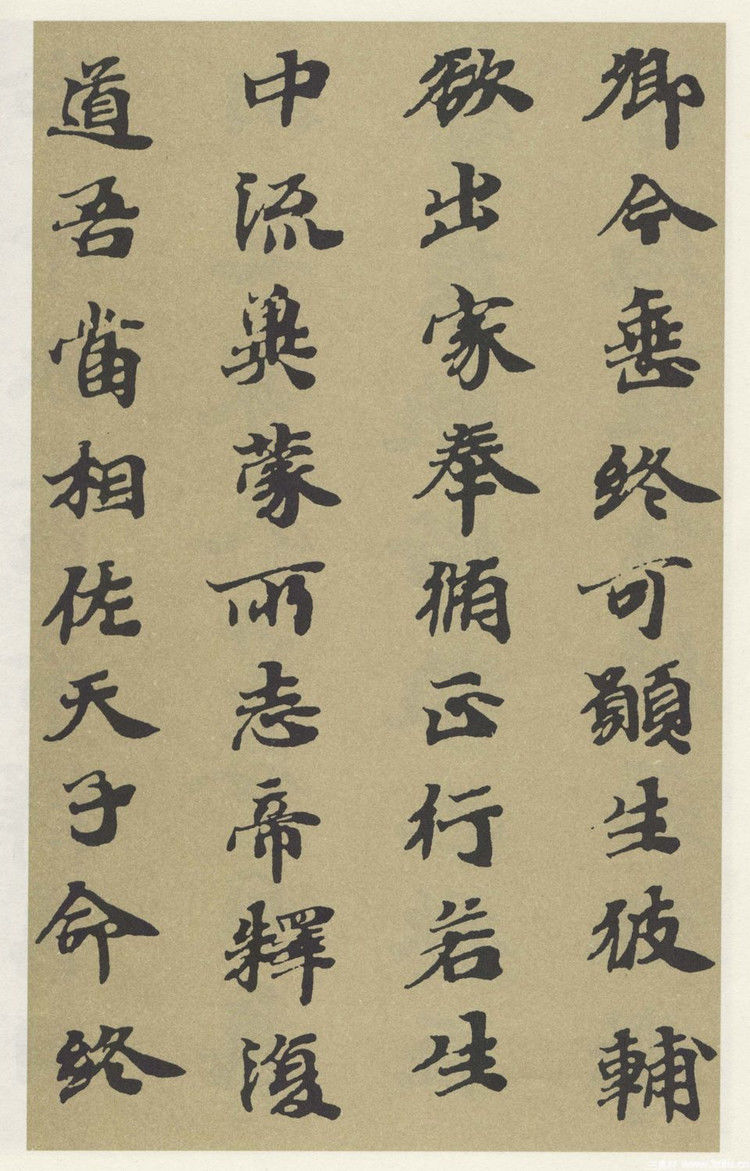 卿今垂終可願生彼輔
欲出家奉脩正行若生
中流冀蒙所志帝釋復
道吾當相佐天子命終